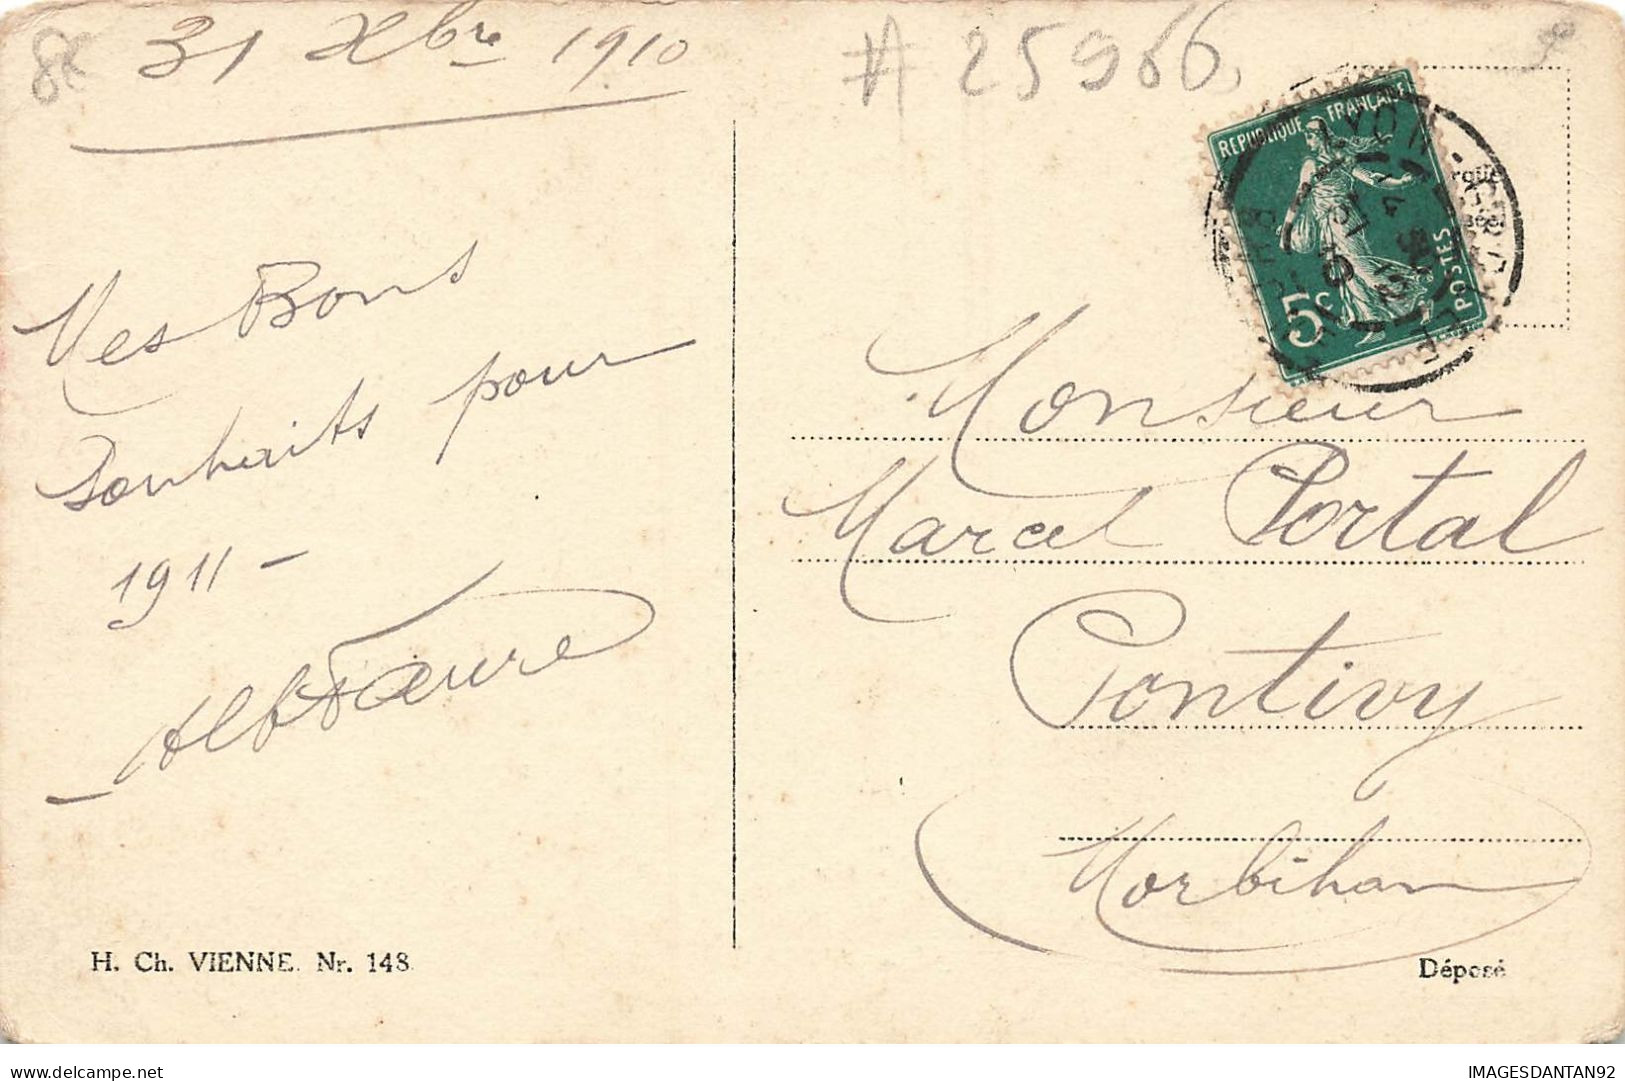 31 Xbre 1910
# 25966
REPUBLIQUE FRANÇAISE
POSTES
5c
LYON - GROLÉE
Mes Bons
Souhaits pour
1911 -
Alb Faure
Monsieur
Marcel Portal
Pontivy
Morbihan
H. Ch. VIENNE. Nr. 148.
Déposé
delcampe.net
IMAGESDANTAN92